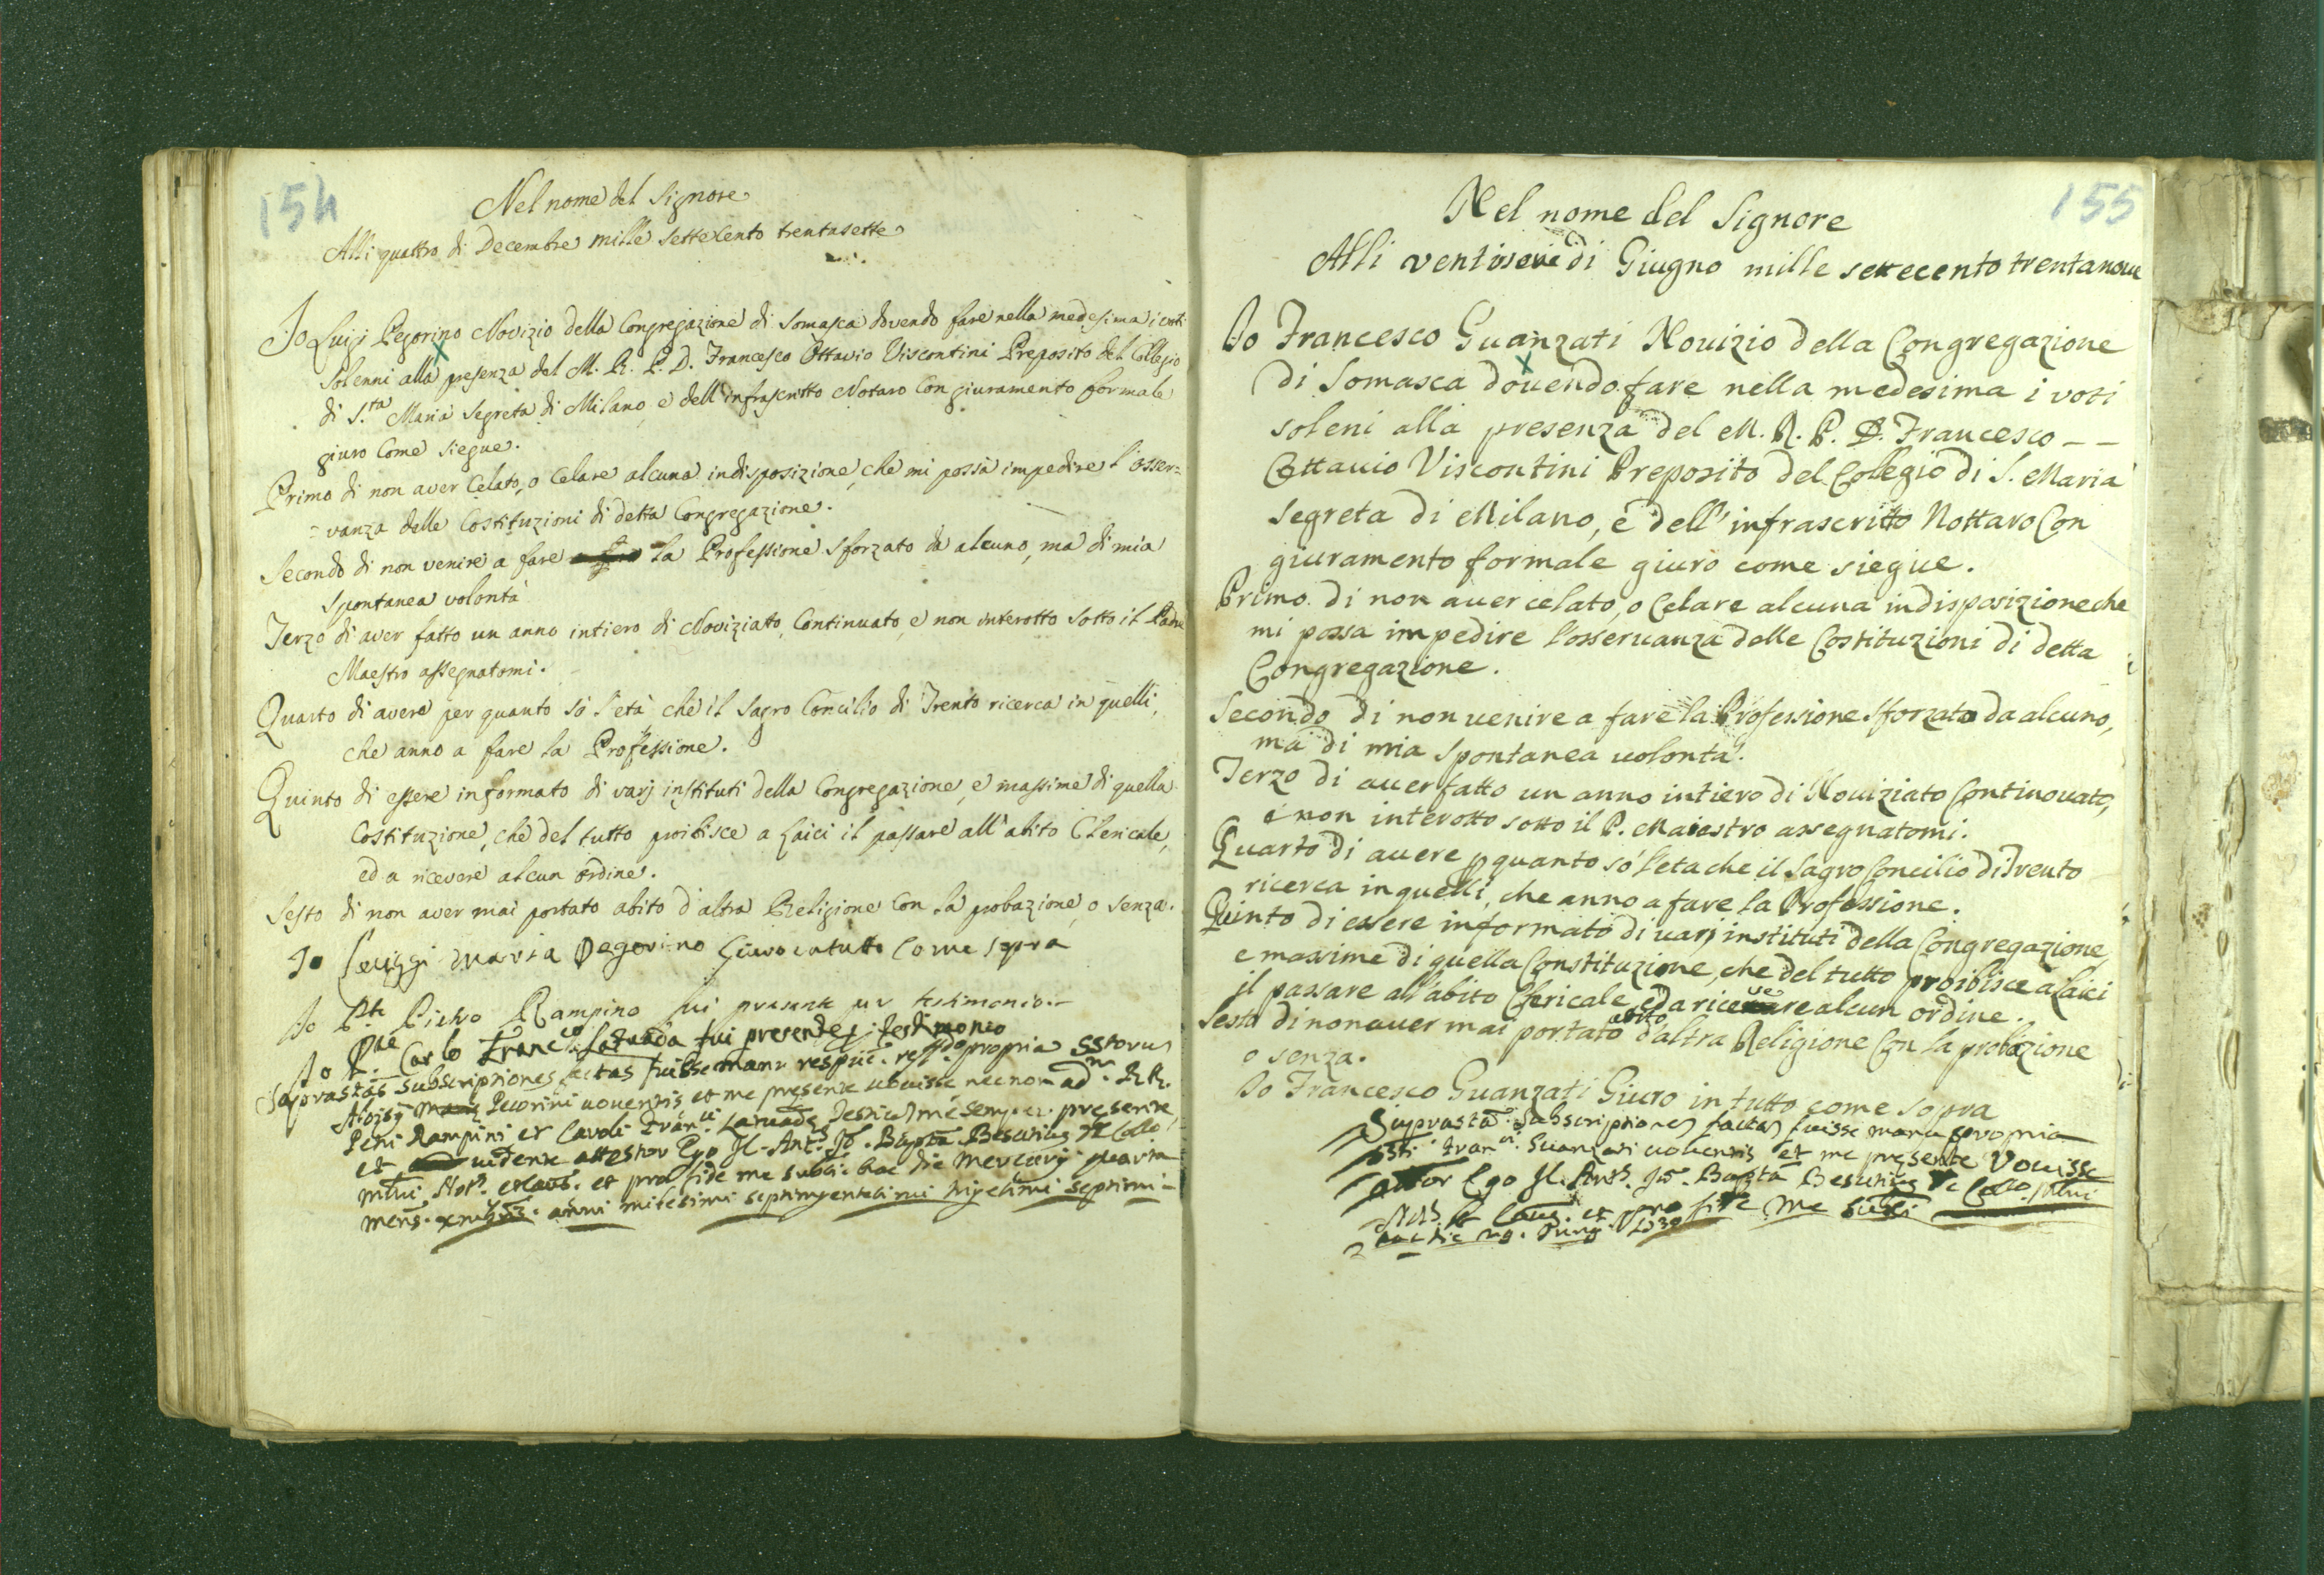 154
Nel nome del Signore
Alli quattro di Decembre mille settecento trentasette
Io Luigi Pegorino Novizio della Congregazione di Somasca dovendo fare nella medesima i voti
solenni alla presenza del M. R. P. D. Francesco Ottavio Viscontini Preposito del Collegio
di S.ta Maria Segreta di Milano, e dell'infrascritto Notaro con giuramento formale
giuro come siegue.
Primo di non aver celato, o celare alcuna indisposizione, che mi possa impedire l'osser=
=vanza delle Costituzioni di detta Congregazione.
Secondo di non venire a fare la Professione sforzato da alcuno, ma di mia
spontanea volontà
Terzo di aver fatto un anno intiero di Noviziato, Continuato, e non interotto sotto il Padre
Maestro assegnatomi.
Quarto di avere per quanto sò l'età, che il Sagro Concilio di Trento ricerca in quelli,
che anno a fare la Professione.
Quinto di essere informato di varj instituti della Congregazione, e massime di quella
Costituzione, che del tutto proibisce a Laici il passare all'abito Clericale,
ed a ricevere alcun ordine.
Sesto di non aver mai portato abito d'altra Religione con la probazione, o senza.
Io Luiggi Maria Pegorino Giuro in tutto come sopra
Io Pte Pietro Rampino fui presente per testimonio.
Io Carlo Franc.co Latuada fui presente p testimonio
Suprastas subscriptiones factas fuisse manu propria
Pecorini voventis et me presente vovisse nec non ad. RR.
Petri Rampini et Caroli Fran.ci Latuadę presente
et vidente attestor Ego Jo. Bapta Besutius de Collo
Mlni Not. et Caus. et pro fide me subsi. hac die Mercurij quarta
mens. Xmbris anni milesimi septingentesimi trigesimi septimi
155
Nel nome del Signore
Alli ventisei di Giugno mille settecento trentanove
Io Francesco Guanzati Nouizio della Congregazione
di Somasca douendo fare nella medesima i voti
soleni alla presenza del M. R. P. D. Francesco --
Ottauio Viscontini Preposito del Colegio di S. Maria
Segreta di Milano, e dell'infrascritto Nottaro Con
giuramento formale giuro come siegue.
Primo di non auer celato, o Celare alcuna indisposizione che
mi possa impedire l'osseruanza delle Costituzioni di detta
Congregazione.
Secondo di non uenire a fare la Professione sforzato da alcuno,
ma di mia spontanea uolontà.
Terzo di auer fatto un anno intiero di Nouiziato Continouato,
e non interotto sotto il P. Maiestro assegnatomi.
Quarto di auere p quanto sò l'eta che il Sagro Concilio di Trento
ricerca in quelli, che anno a fare la Professione.
Quinto di essere informato di uarj instituti della Congregazione,
e massime di quella Constituzione, che del tutto proibisce a laici
il passare all'abito Clericale, ed a riceuere alcun ordine.
Sesto di non auer mai portato abito d'altra Religione Con la probazione
o senza.
Io Francesco Guanzati Giuro in tutto come sopra
Suprasta. Subscriptiones factas fuisse manu propria
Fran.ci Guanzati voventis et me presente Vouisse
Ego Jo. Bapta Besutius de Collo. Mlni
Not. et Caus. et pro fide me subsi
hac die 1739